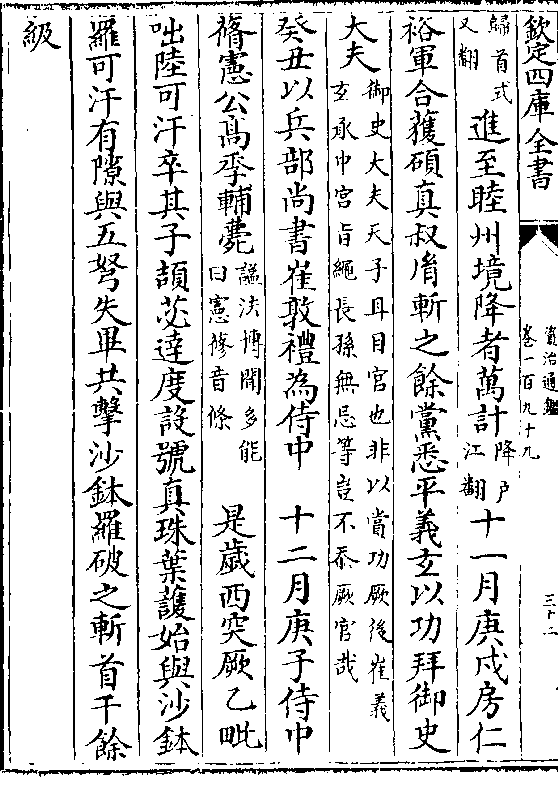 欽定四庫全書
資治通鑑
卷一百九十九
三十二
歸首式
又翻
進至睦州境降者萬計
降户
江翻
十一月庚戍房仁
裕軍合獲碩真叔胤斬之餘黨悉平義玄以功拜御史
大夫
御史大夫天子耳目官也非以當功厥後崔義
玄承中宫㫖繩長孫無忌等豈不忝厥官哉
癸丑以兵部尚書崔敦禮為侍中　十二月庚子侍中
蓨憲公高季輔薨
謚法博聞多能
曰憲蓨音條
是歲西突厥乙毗
咄陸可汗卒其子頡苾達度設號真珠葉護始與沙鉢
羅可汗有隙與五弩失畢共擊沙鉢羅破之斬首千餘
級